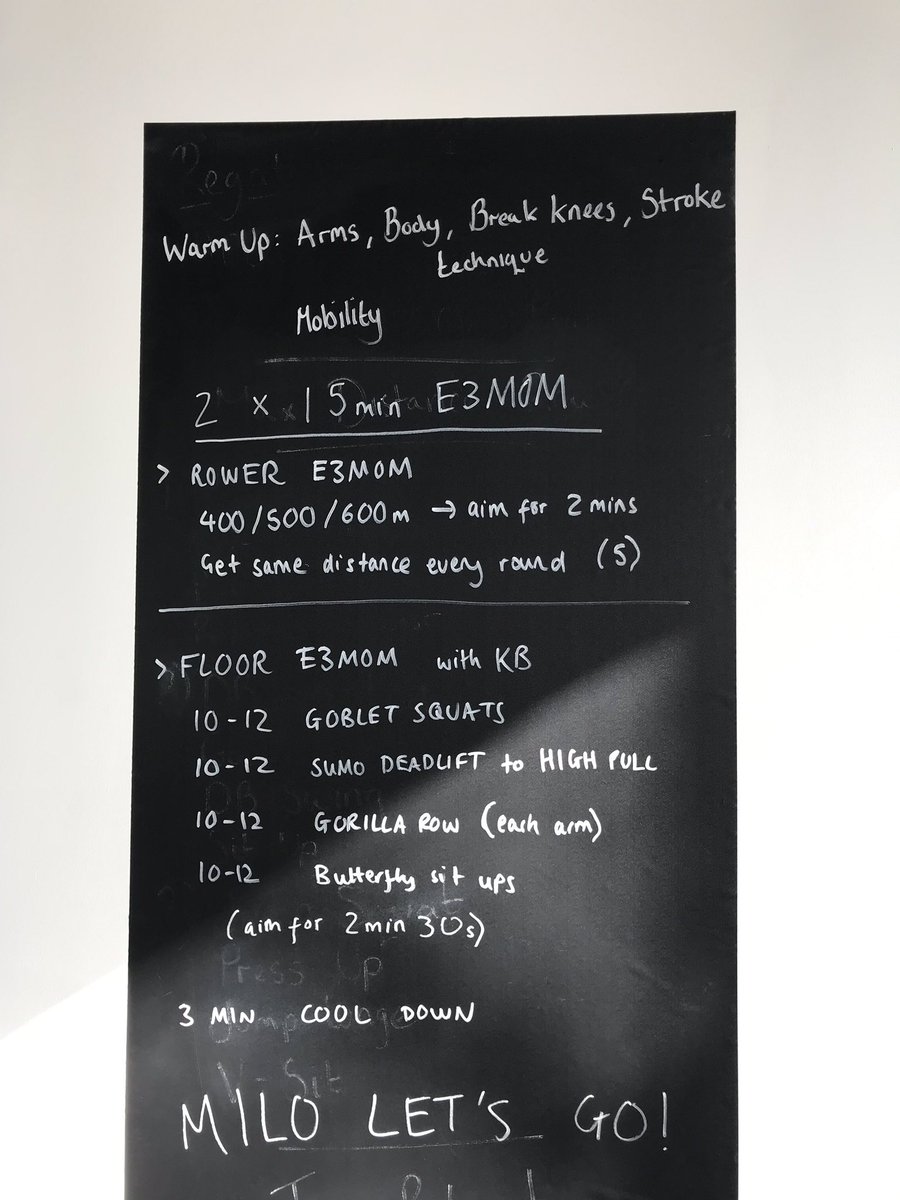 Warm Up: Arms, Body, Break knees, Stroke
technique
Mobility
2 x 15min E3MOM
> ROWER E3MOM
400/500/600m → aim for 2 mins
Get same distance every round (5)
> FLOOR E3MOM with KB
10-12 GOBLET SQUATS
10-12 SUMO DEADLIFT to HIGH PULL
10-12 GORILLA ROW (each arm)
10-12 Butterfly sit ups
(aim for 2min 30s)
Press Up
3 MIN COOL DOWN
V-Sit
MILO LET'S GO!